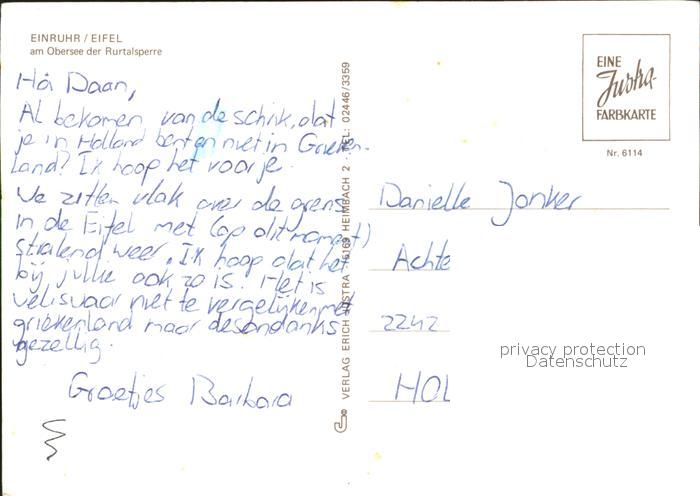 EINRUHR / EIFEL
am Obersee der Rurtalsperre
Hoi Daan,
Al bekomen van de schrik, dat
je in Holland bent en niet in Grieken-
land? Ik hoop het voor je.
We zitten vlak over de grens
in de Eifel met (op dit moment)
stralend weer. Ik hoop dat het
bij jullie ook zo is. Het is
weliswaar niet te vergelijken met
griekenland maar desondanks
gezellig.
Groetjes Barbara
VERLAG ERICH JUSTRA · 5169 HEIMBACH 2 · TEL.: 02446/3359
EINE
Justra-
FARBKARTE
Nr. 6114
Danielle Jonker
Achte
2242
HOL
privacy protection
Datenschutz